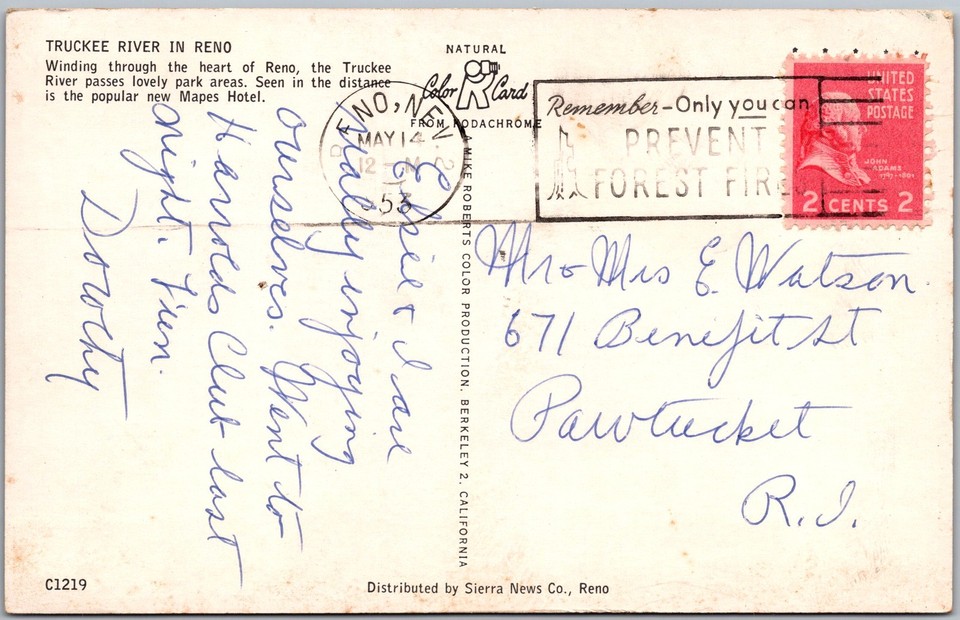 TRUCKEE RIVER IN RENO
Winding through the heart of Reno, the Truckee
River passes lovely park areas. Seen in the distance
is the popular new Mapes Hotel.
NATURAL
Color Card
FROM KODACHROME
A MIKE ROBERTS COLOR PRODUCTION, BERKELEY 2, CALIFORNIA
RENO, NEV. 2
MAY 14
12 M
53
Remember - Only you can
PREVENT
FOREST FIRE
UNITED
STATES
POSTAGE
JOHN
ADAMS
1797-1801
2 CENTS 2
Elsie & I are
really enjoying
ourselves. Went to
Harolds Club last
night. Fun.
Dorothy
Mr & Mrs E. Watson.
671 Benefit St
Pawtucket
R.I.
C1219
Distributed by Sierra News Co., Reno